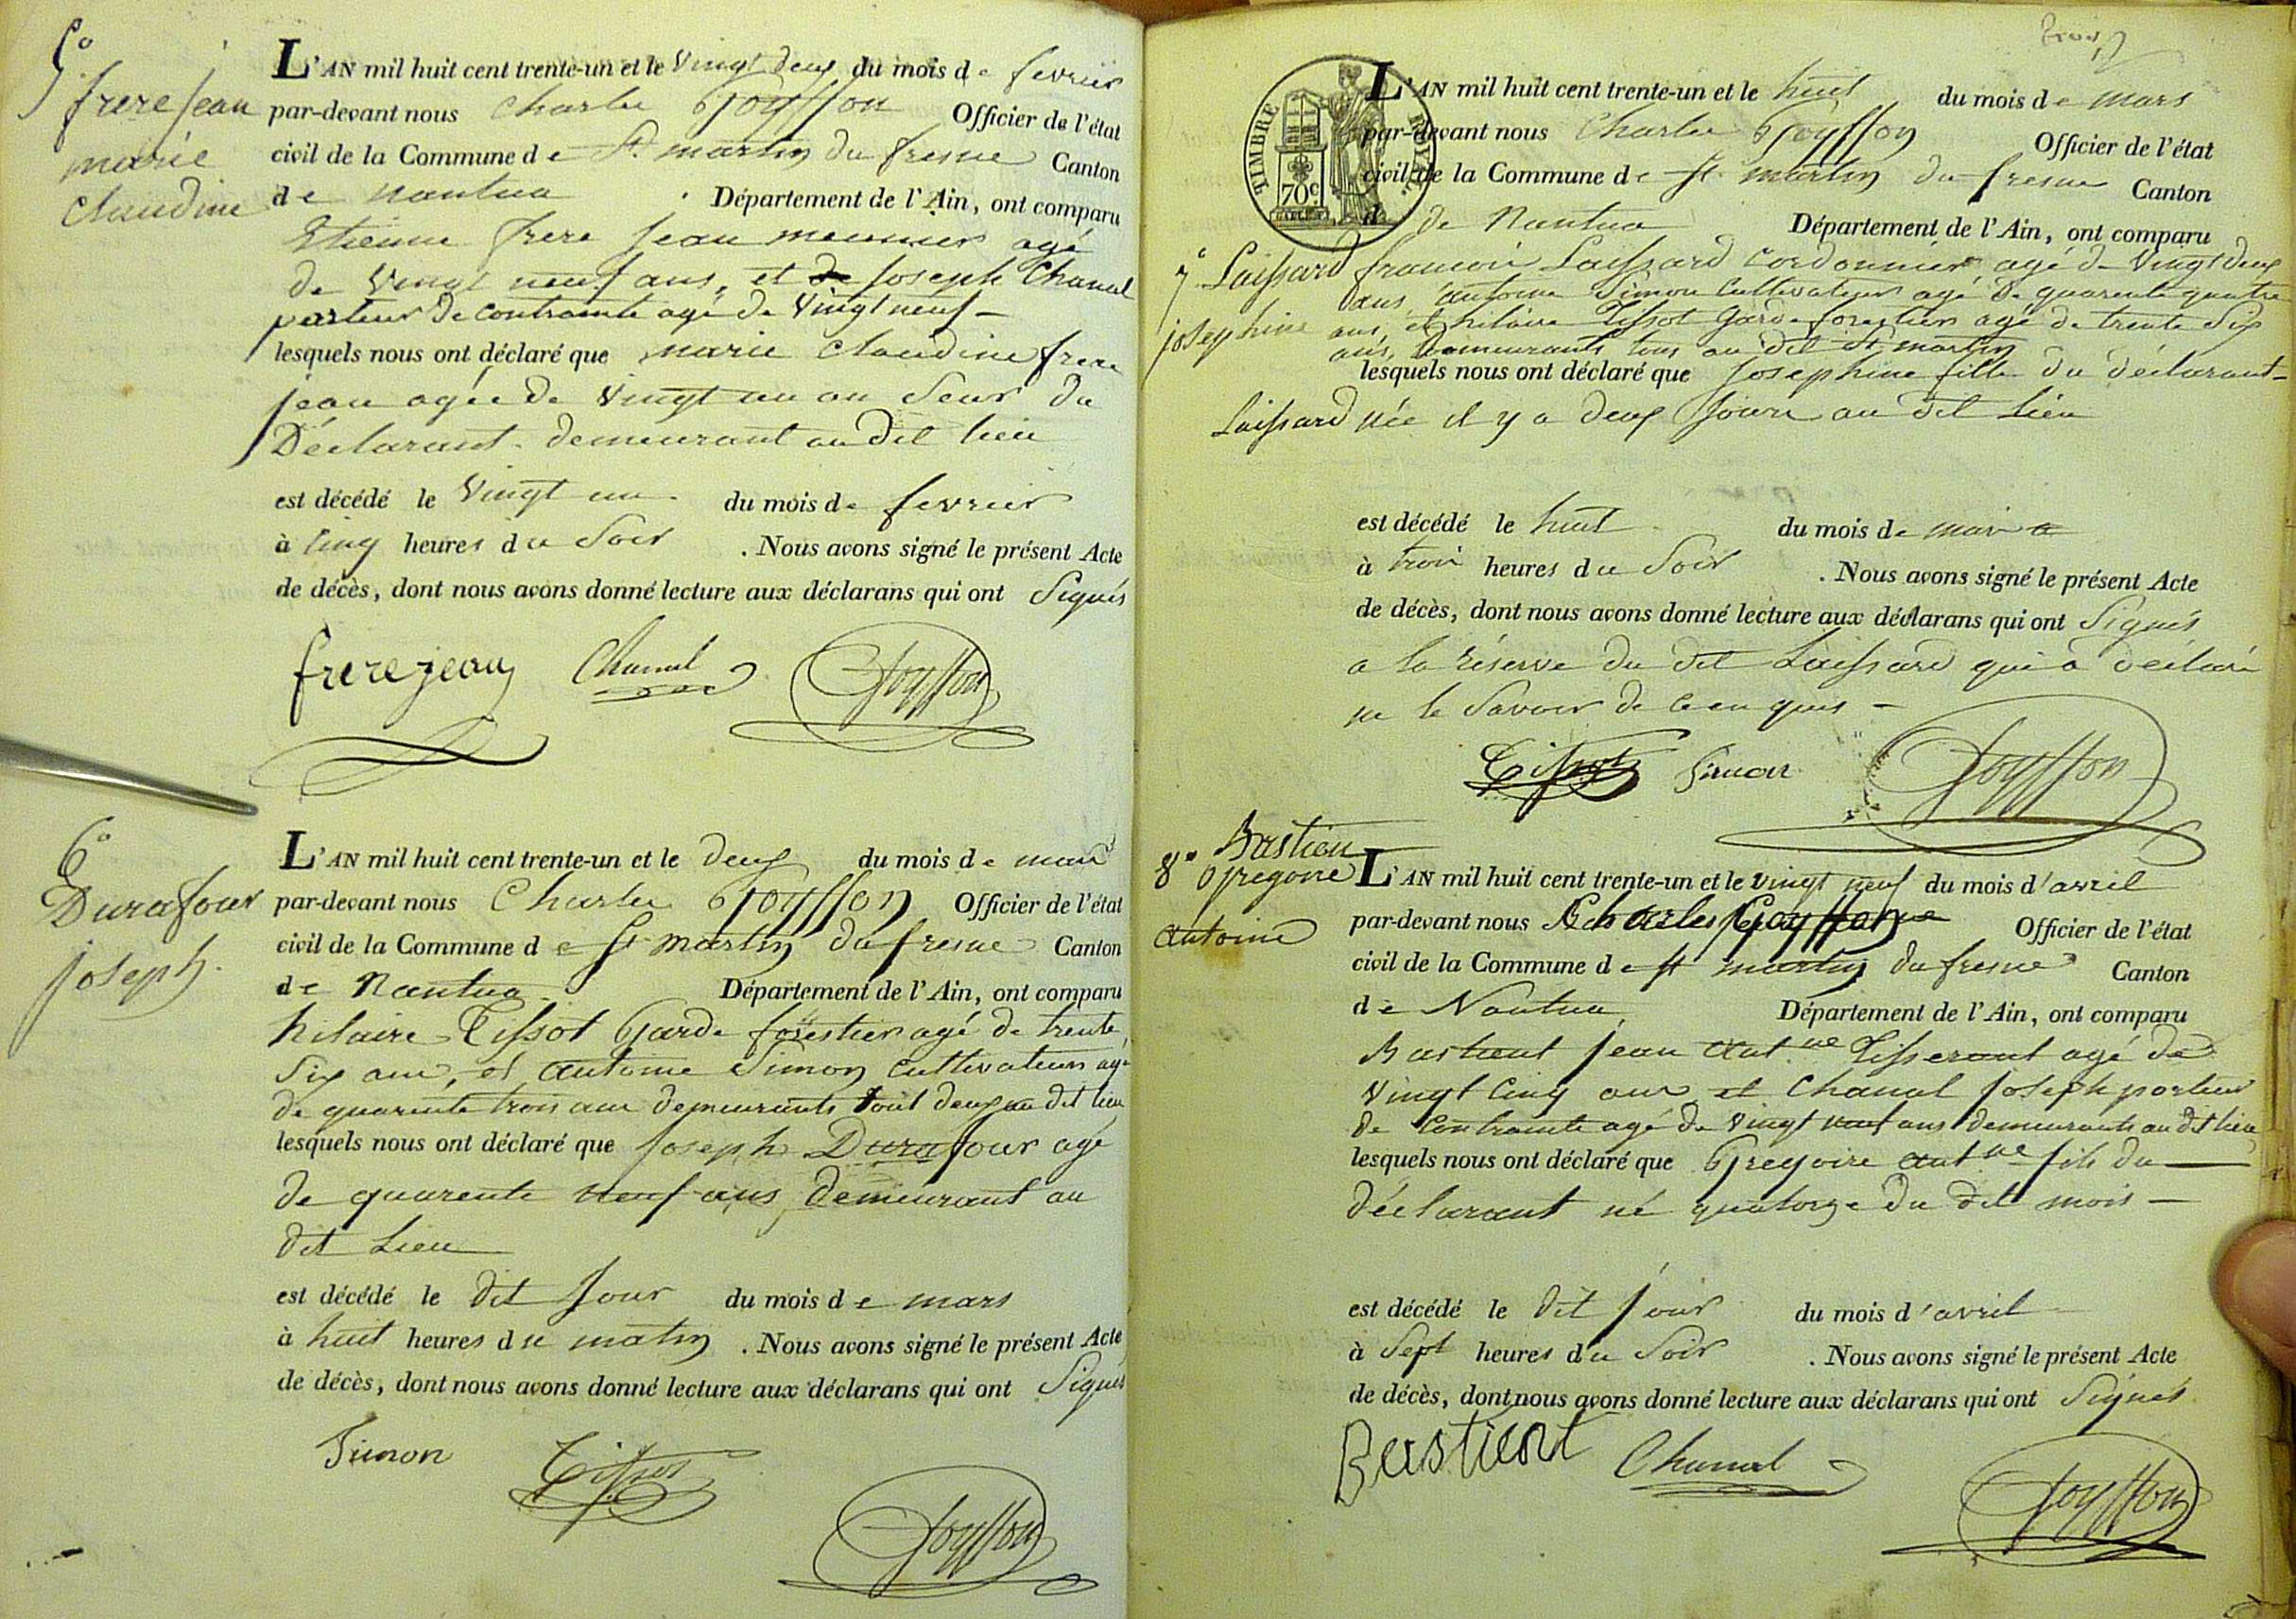 5°
frere jean
marie
claudine
L'AN mil huit cent trente-un et le vingt deux du mois de fevrier
par-devant nous Charles Goyffon Officier de l'état
civil de la Commune de St. martin du fresne Canton
de nantua . Département de l'Ain, ont comparu
Etienne frere jean meunier agé
de vingt neuf ans, et de joseph Chanal
porteur de contrainte agé de vingt neuf —
lesquels nous ont déclaré que marie claudine frere
jean agée de vingt un an Seur du
Déclarant demeurant au dit lieu
est décédé le vingt un du mois de fevrier
à cinq heures du Soir . Nous avons signé le présent Acte
de décès, dont nous avons donné lecture aux déclarans qui ont Signés
frerejean Chanal Goyffon
6°
Durafour
joseph.
L'AN mil huit cent trente-un et le deux du mois de mars
par-devant nous Charles Goyffon Officier de l'état
civil de la Commune de St martin du fresne Canton
de Nantua Département de l'Ain, ont comparu
hilaire Tissot Garde forestier agé de trente
Six ans, et antoine Simon cultivateur agé
de quarente trois ans demeurants tout deux au dit lieu
lesquels nous ont déclaré que joseph Durafour agé
de quarente neuf ans demeurant au
dit Lieu
est décédé le dit jour du mois de mars
à huit heures du matin . Nous avons signé le présent Acte
de décès, dont nous avons donné lecture aux déclarans qui ont Signés
Simon Tissot
Goyffon
TIMBRE ROYAL
70c
7e Laissard
josephine
L'AN mil huit cent trente-un et le huit du mois de mars
par-devant nous Charles Goyffon Officier de l'état
civil de la Commune de St martin du fresne Canton
de Nantua Département de l'Ain, ont comparu
francois Laissard cordonnier agé de vingt deux
ans, antoine Simon cultivateur agé de quarente quatre
ans, et hilaire Tissot garde forestier agé de trente Six
ans, demeurants tous au dit St martin
lesquels nous ont déclaré que josephine fille du déclarant
Laissard née il y a deux jours au dit Lieu
est décédé le huit du mois de mars
à trois heures du Soir . Nous avons signé le présent Acte
de décès, dont nous avons donné lecture aux déclarans qui ont Signés
a la réserve du dit Laissard qui a déclaré
ne le Savoir de ce enquis —
Tissot Simon Goyffon
8° Bastien
Gregoire
antoine
L'AN mil huit cent trente-un et le vingt neuf du mois d'avril
par-devant nous Charles Goyffon Officier de l'état
civil de la Commune de St martin du fresne Canton
de Nantua Département de l'Ain, ont comparu
Bastient jean ant.ne Tisserant agé de
vingt cinq ans et Chanal joseph porteur
de contrainte agé de vingt neuf ans demeurants au dit lieu
lesquels nous ont déclaré que Gregoire ant.ne fils du —
déclarant né quatorze du dit mois —
est décédé le dit jour du mois d'avril
à Sept heures du Soir . Nous avons signé le présent Acte
de décès, dont nous avons donné lecture aux déclarans qui ont Signés
Bastient Chanal
Goyffon